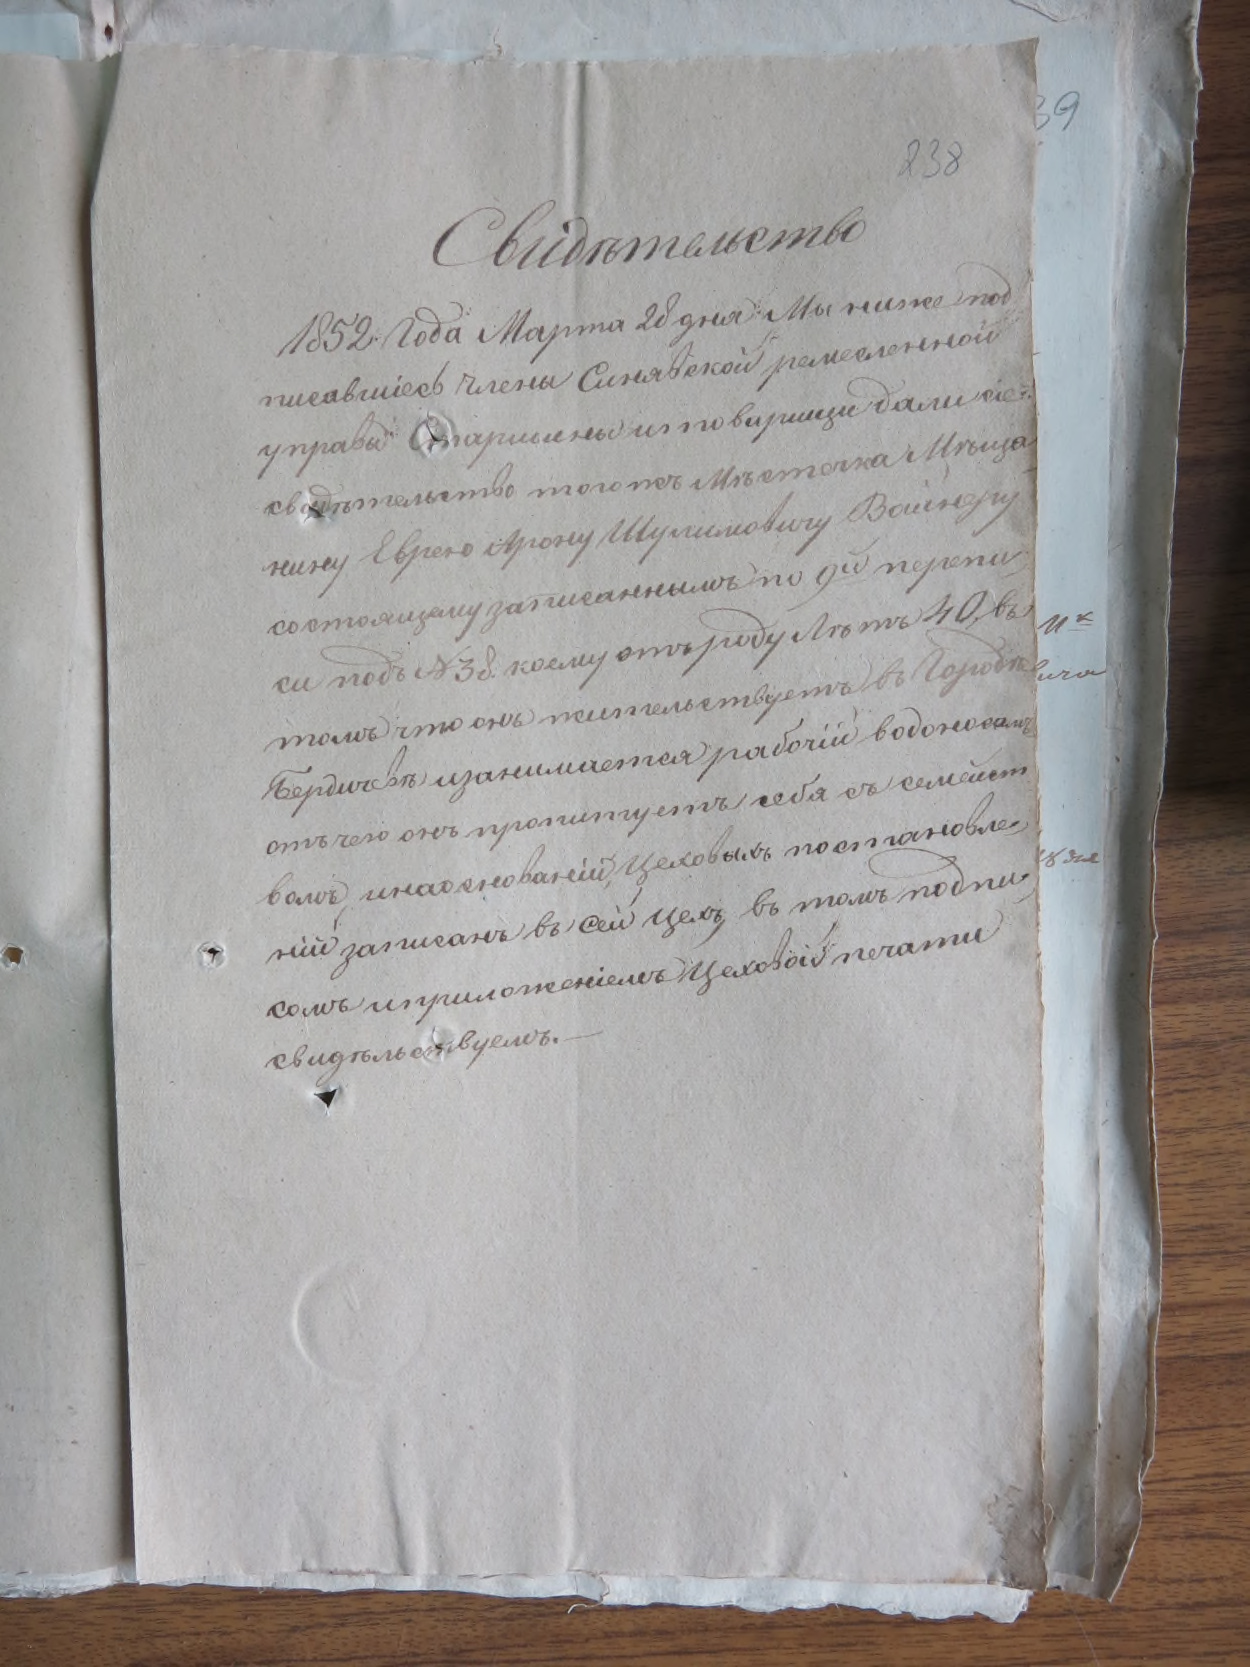 39
238
Свидѣтельство
1852 Года Марта 28 дня Мы ниже под
писавшіесь члены Синявской ремесленной
управы Старшины и товарищи дали сіе
свидѣтельство того жъ Мѣстечка Мѣща
нину Еврею Арону Шулимовичу Вайнеру
состоящему записаннымъ по 9й перепи
си подъ №38. коему отъ роду Лѣтъ 40, въ
томъ что онъ жительствуетъ въ Городѣ
Бердичевѣ и занимается рабочій водоносомъ
отъ чего онъ пропитуетъ себя съ семейст
вомъ, и на основаніи Цеховыхъ постановле
ній записанъ въ сей Цехъ, въ томъ подпи
сомъ и приложеніемъ Цеховой печати
свидѣльствуемъ.